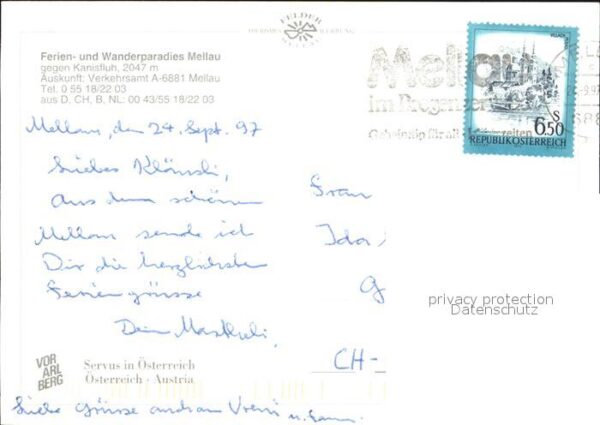 FELDER
TOURISMUS WERBUNG
MELLAU
Ferien- und Wanderparadies Mellau
gegen Kanisfluh, 2047 m
Auskunft: Verkehrsamt A-6881 Mellau
Tel. 0 55 18/22 03
aus D, CH, B, NL: 00 43/55 18/22 03
Mellau
im Bregenzer
Geheimtip für all Jahreszeiten
S
6.50
REPUBLIK ÖSTERREICH
Mellau, den 24. Sept. 97
Liebes
aus dem schönen
Mellau sende ich
Dir die herzlichsten
Feriengrüsse
Dein
Frau
Ida
G
CH-
privacy protection
Datenschutz
VOR
ARL
BERG
Servus in Österreich
Österreich · Austria
Liebe Grüsse auch an Vreni u.